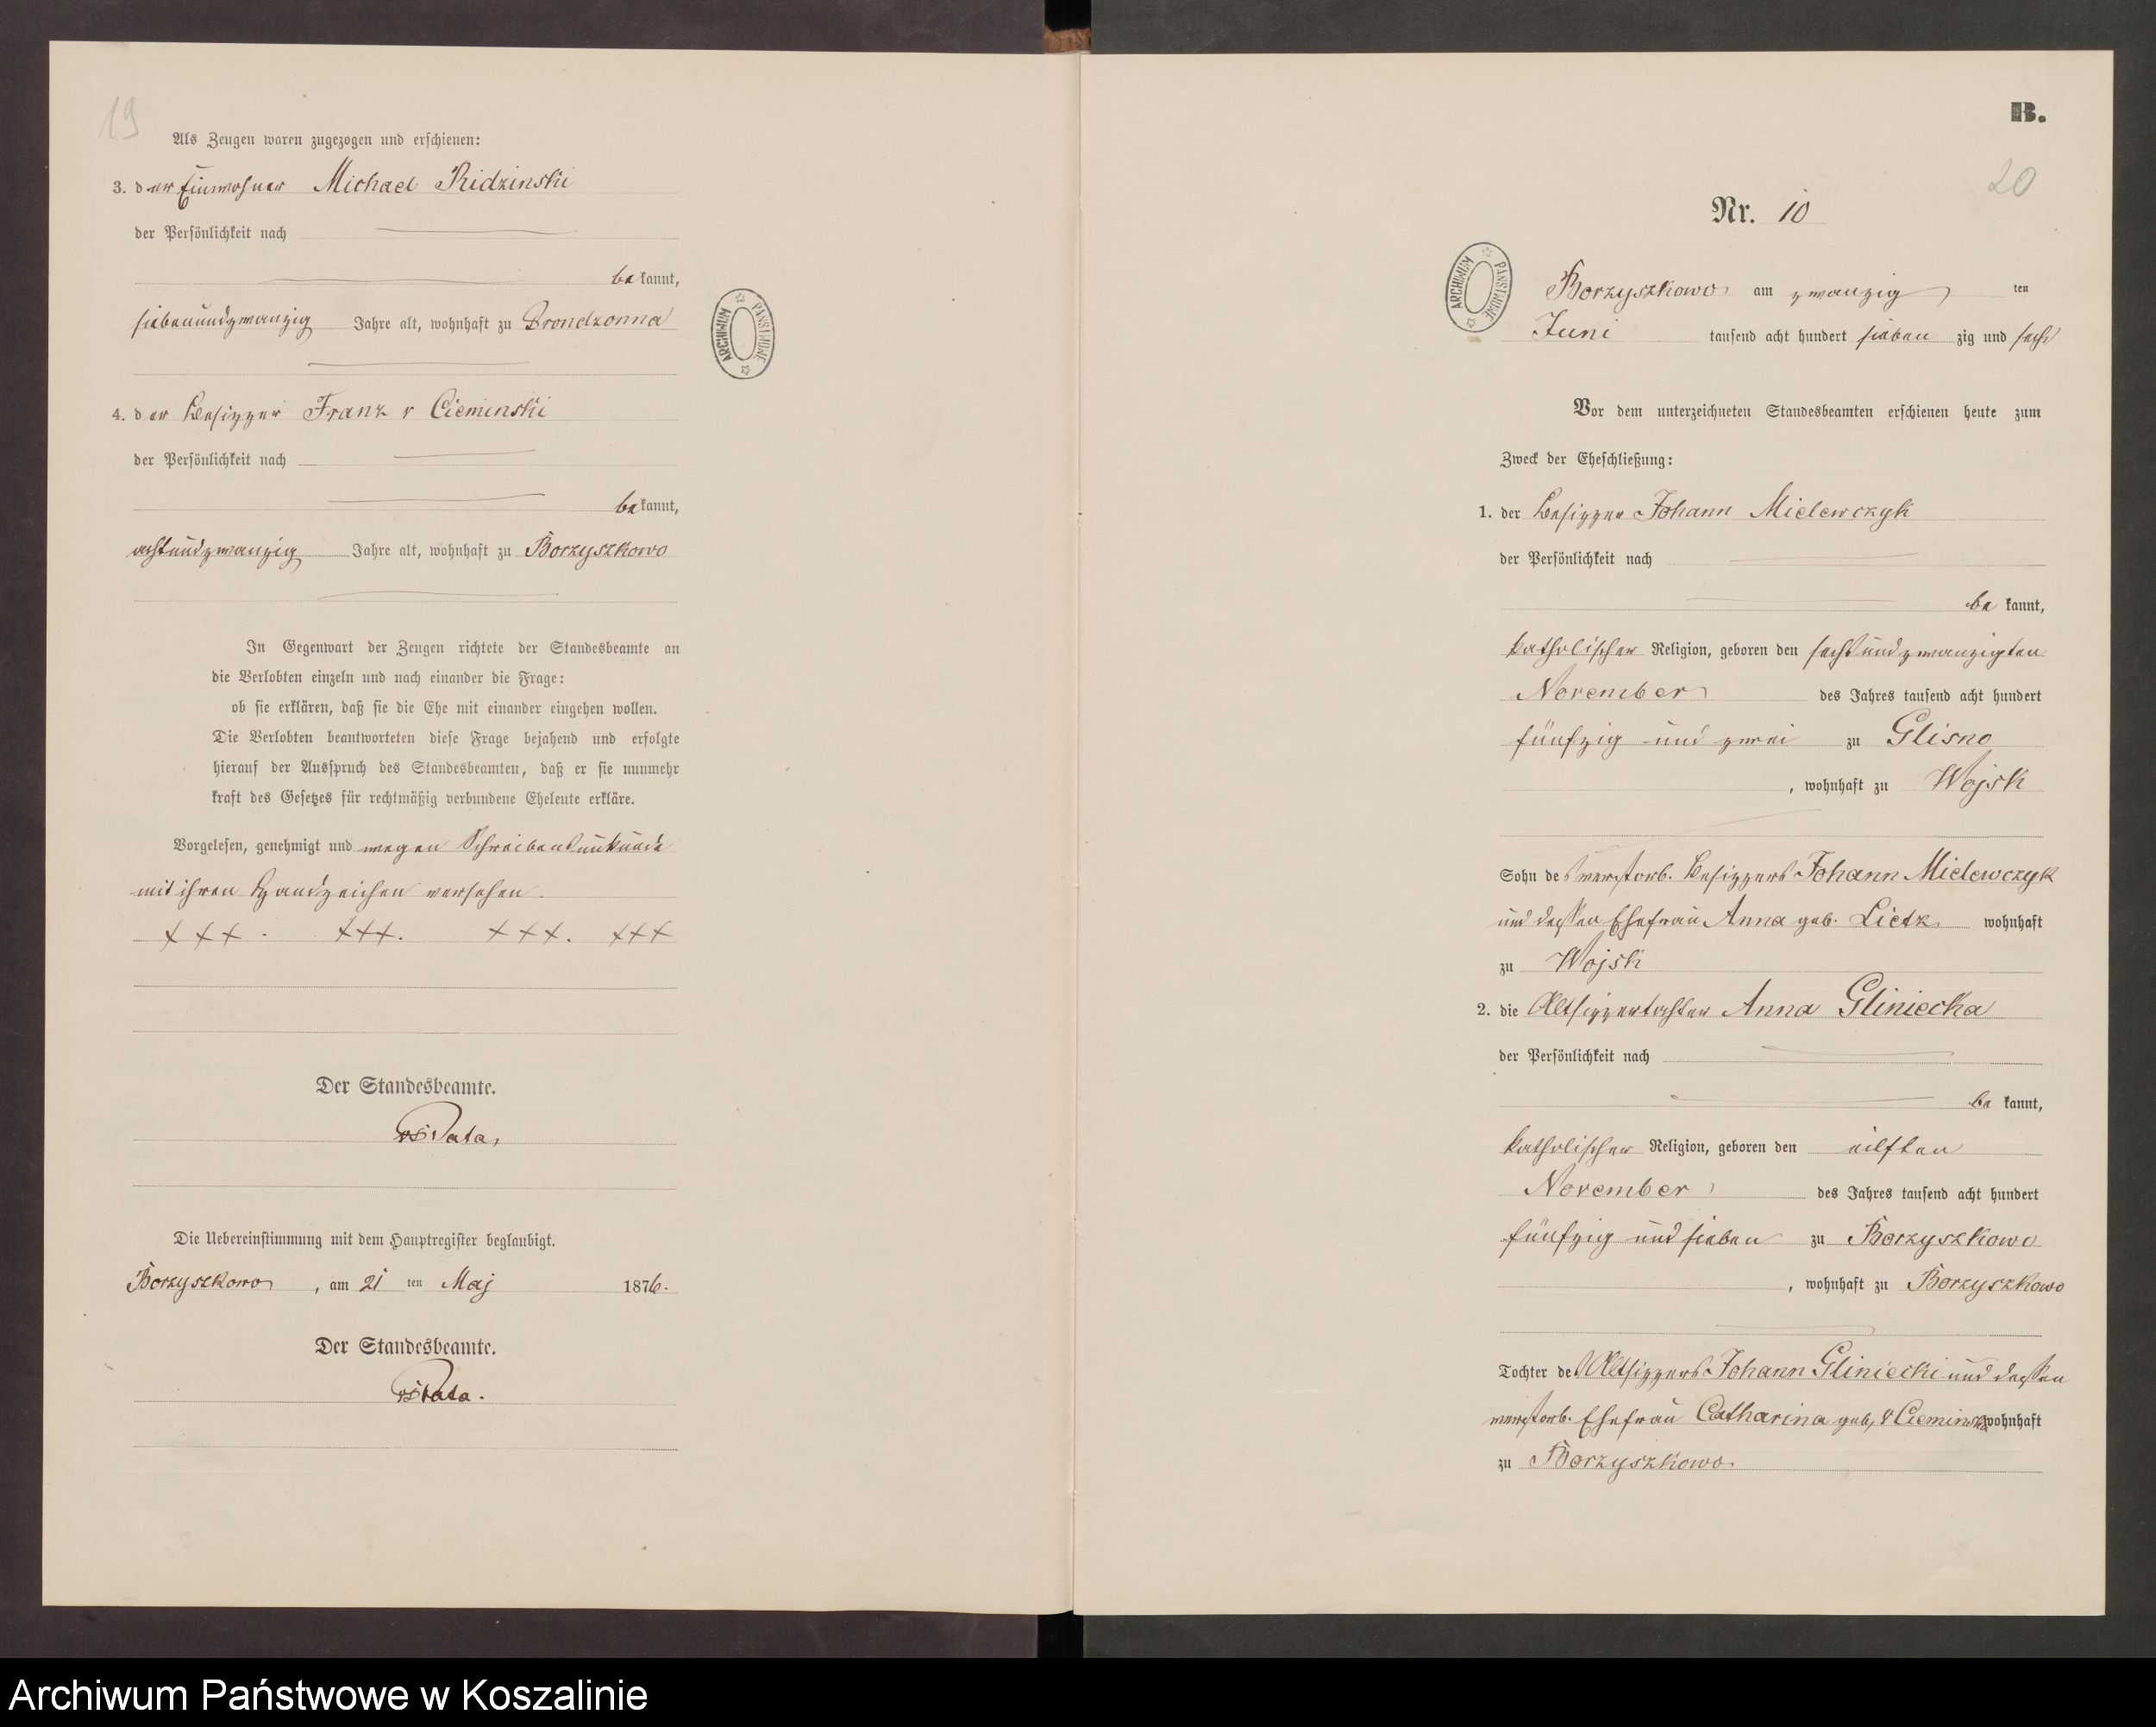 19
Als Zeugen waren zugezogen und erschienen:
3. der Einwohner Michael Ridzinski
der Persönlichkeit nach
bekannt,
siebenundzwanzig Jahre alt, wohnhaft zu Brondzonna
4. der Besitzer Franz v Cieminski
der Persönlichkeit nach
bekannt,
achtundzwanzig Jahre alt, wohnhaft zu Borzyszkowo
In Gegenwart der Zeugen richtete der Standesbeamte an
die Verlobten einzeln und nach einander die Frage:
ob sie erklären, daß sie die Ehe mit einander eingehen wollen.
Die Verlobten beantworteten diese Frage bejahend und erfolgte
hierauf der Ausspruch des Standesbeamten, daß er sie nunmehr
kraft des Gesetzes für rechtmäßig verbundene Eheleute erkläre.
Vorgelesen, genehmigt und wegen Schreibensunkunde
mit ihren Handzeichen versehen.
+++. +++. +++. +++
Der Standesbeamte.
Die Uebereinstimmung mit dem Hauptregister beglaubigt.
Borzyszkowo, am 21 ten Maj 1876.
Der Standesbeamte.
ARCHIWUM PAŃSTWOWE
B.
20
Nr. 10
ARCHIWUM PAŃSTWOWE
Borzyszkowo am zwanzig ten
Juni tausend acht hundert sieben zig und sechs
Vor dem unterzeichneten Standesbeamten erschienen heute zum
Zweck der Eheschließung:
1. der Besitzer Johann Mielewczyk
der Persönlichkeit nach
be kannt,
katholischer Religion, geboren den sechsundzwanzigten
November des Jahres tausend acht hundert
fünfzig und zwei zu Glisno
, wohnhaft zu Wojsk
Sohn des verstorb. Besitzers Johann Mielewczyk
und dessen Ehefrau Anna geb. Lietz wohnhaft
zu Wojsk
2. die Altsitzertochter Anna Gliniecka
der Persönlichkeit nach
be kannt,
katholischer Religion, geboren den eilften
November des Jahres tausend acht hundert
fünfzig und sieben zu Borzyszkowo
, wohnhaft zu Borzyszkowo
Tochter des Altsitzers Johann Gliniecki und dessen
verstorb. Ehefrau Catharina geb. v Cieminska wohnhaft
zu Borzyszkowo
Archiwum Państwowe w Koszalinie